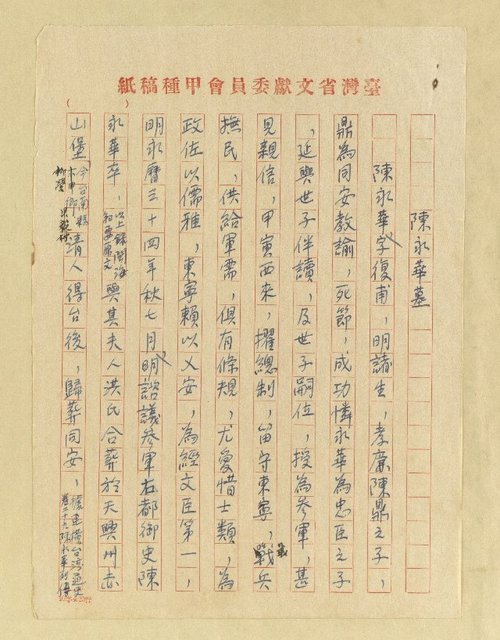 臺灣省文獻委員會甲種稿紙
(　　　)
陳永華墓
陳永華字復甫，明諸生，孝廉陳鼎之子，
鼎為同安教諭，死節，成功憐永華為忠臣之子
，延與世子伴讀，及世子嗣位，授為參軍，甚
見親信，甲寅西來，擢總制，留守東寧，戢兵
撫民，供給軍需，俱有條規，尤愛惜士類，為
政佐以儒雅，東寧賴以乂安，為經文臣第一，
明永曆三十四年秋七月明諮議參軍右都御史陳
永華卒，以上錄閩海紀要原文與其夫人洪氏合葬於天興州赤
山堡（今台南縣柳營鄉）清人得台後，歸葬同安，據連橫台灣通史卷二十九陳永華列傳